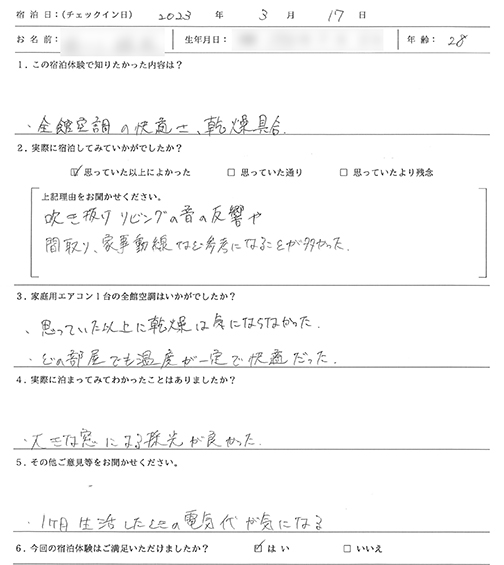 宿泊日:(チェックイン日) 2023 年 3 月 17 日
お名前: 生年月日: 年齢: 28
1. この宿泊体験で知りたかった内容は?
・全館空調の快適さ、乾燥具合
2. 実際に宿泊してみていかがでしたか?
☑ 思っていた以上によかった □ 思っていた通り □ 思っていたより残念
上記理由をお聞かせください。
吹き抜けリビングの音の反響や
間取り、家事動線など参考になることが多かった。
3. 家庭用エアコン1台の全館空調はいかがでしたか?
・思っていた以上に乾燥は気にならなかった。
・どの部屋でも温度が一定で快適だった。
4. 実際に泊まってみてわかったことはありましたか?
・大きな窓による採光が良かった。
5. その他ご意見等をお聞かせください。
・1ヶ月生活したときの電気代が気になる
6. 今回の宿泊体験はご満足いただけましたか? ☑ はい □ いいえ